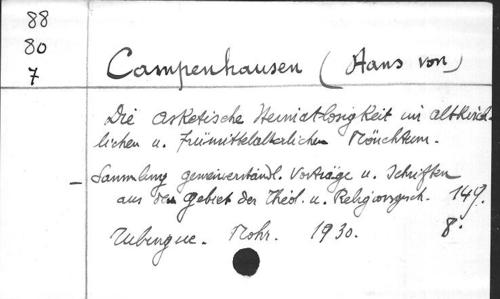 88
80
7
Campenhausen (Hans von)
Die asketische Heimatlosigkeit im altkirch-
lichen u. frümittelalterlichen Mönchtum.
- Sammlung gemeinverständl. Vorträge u. Schriften
aus dem gebiet der Theol. u. Religionsgesch. 149.
Tubingue. Mohr. 1930. 8°.